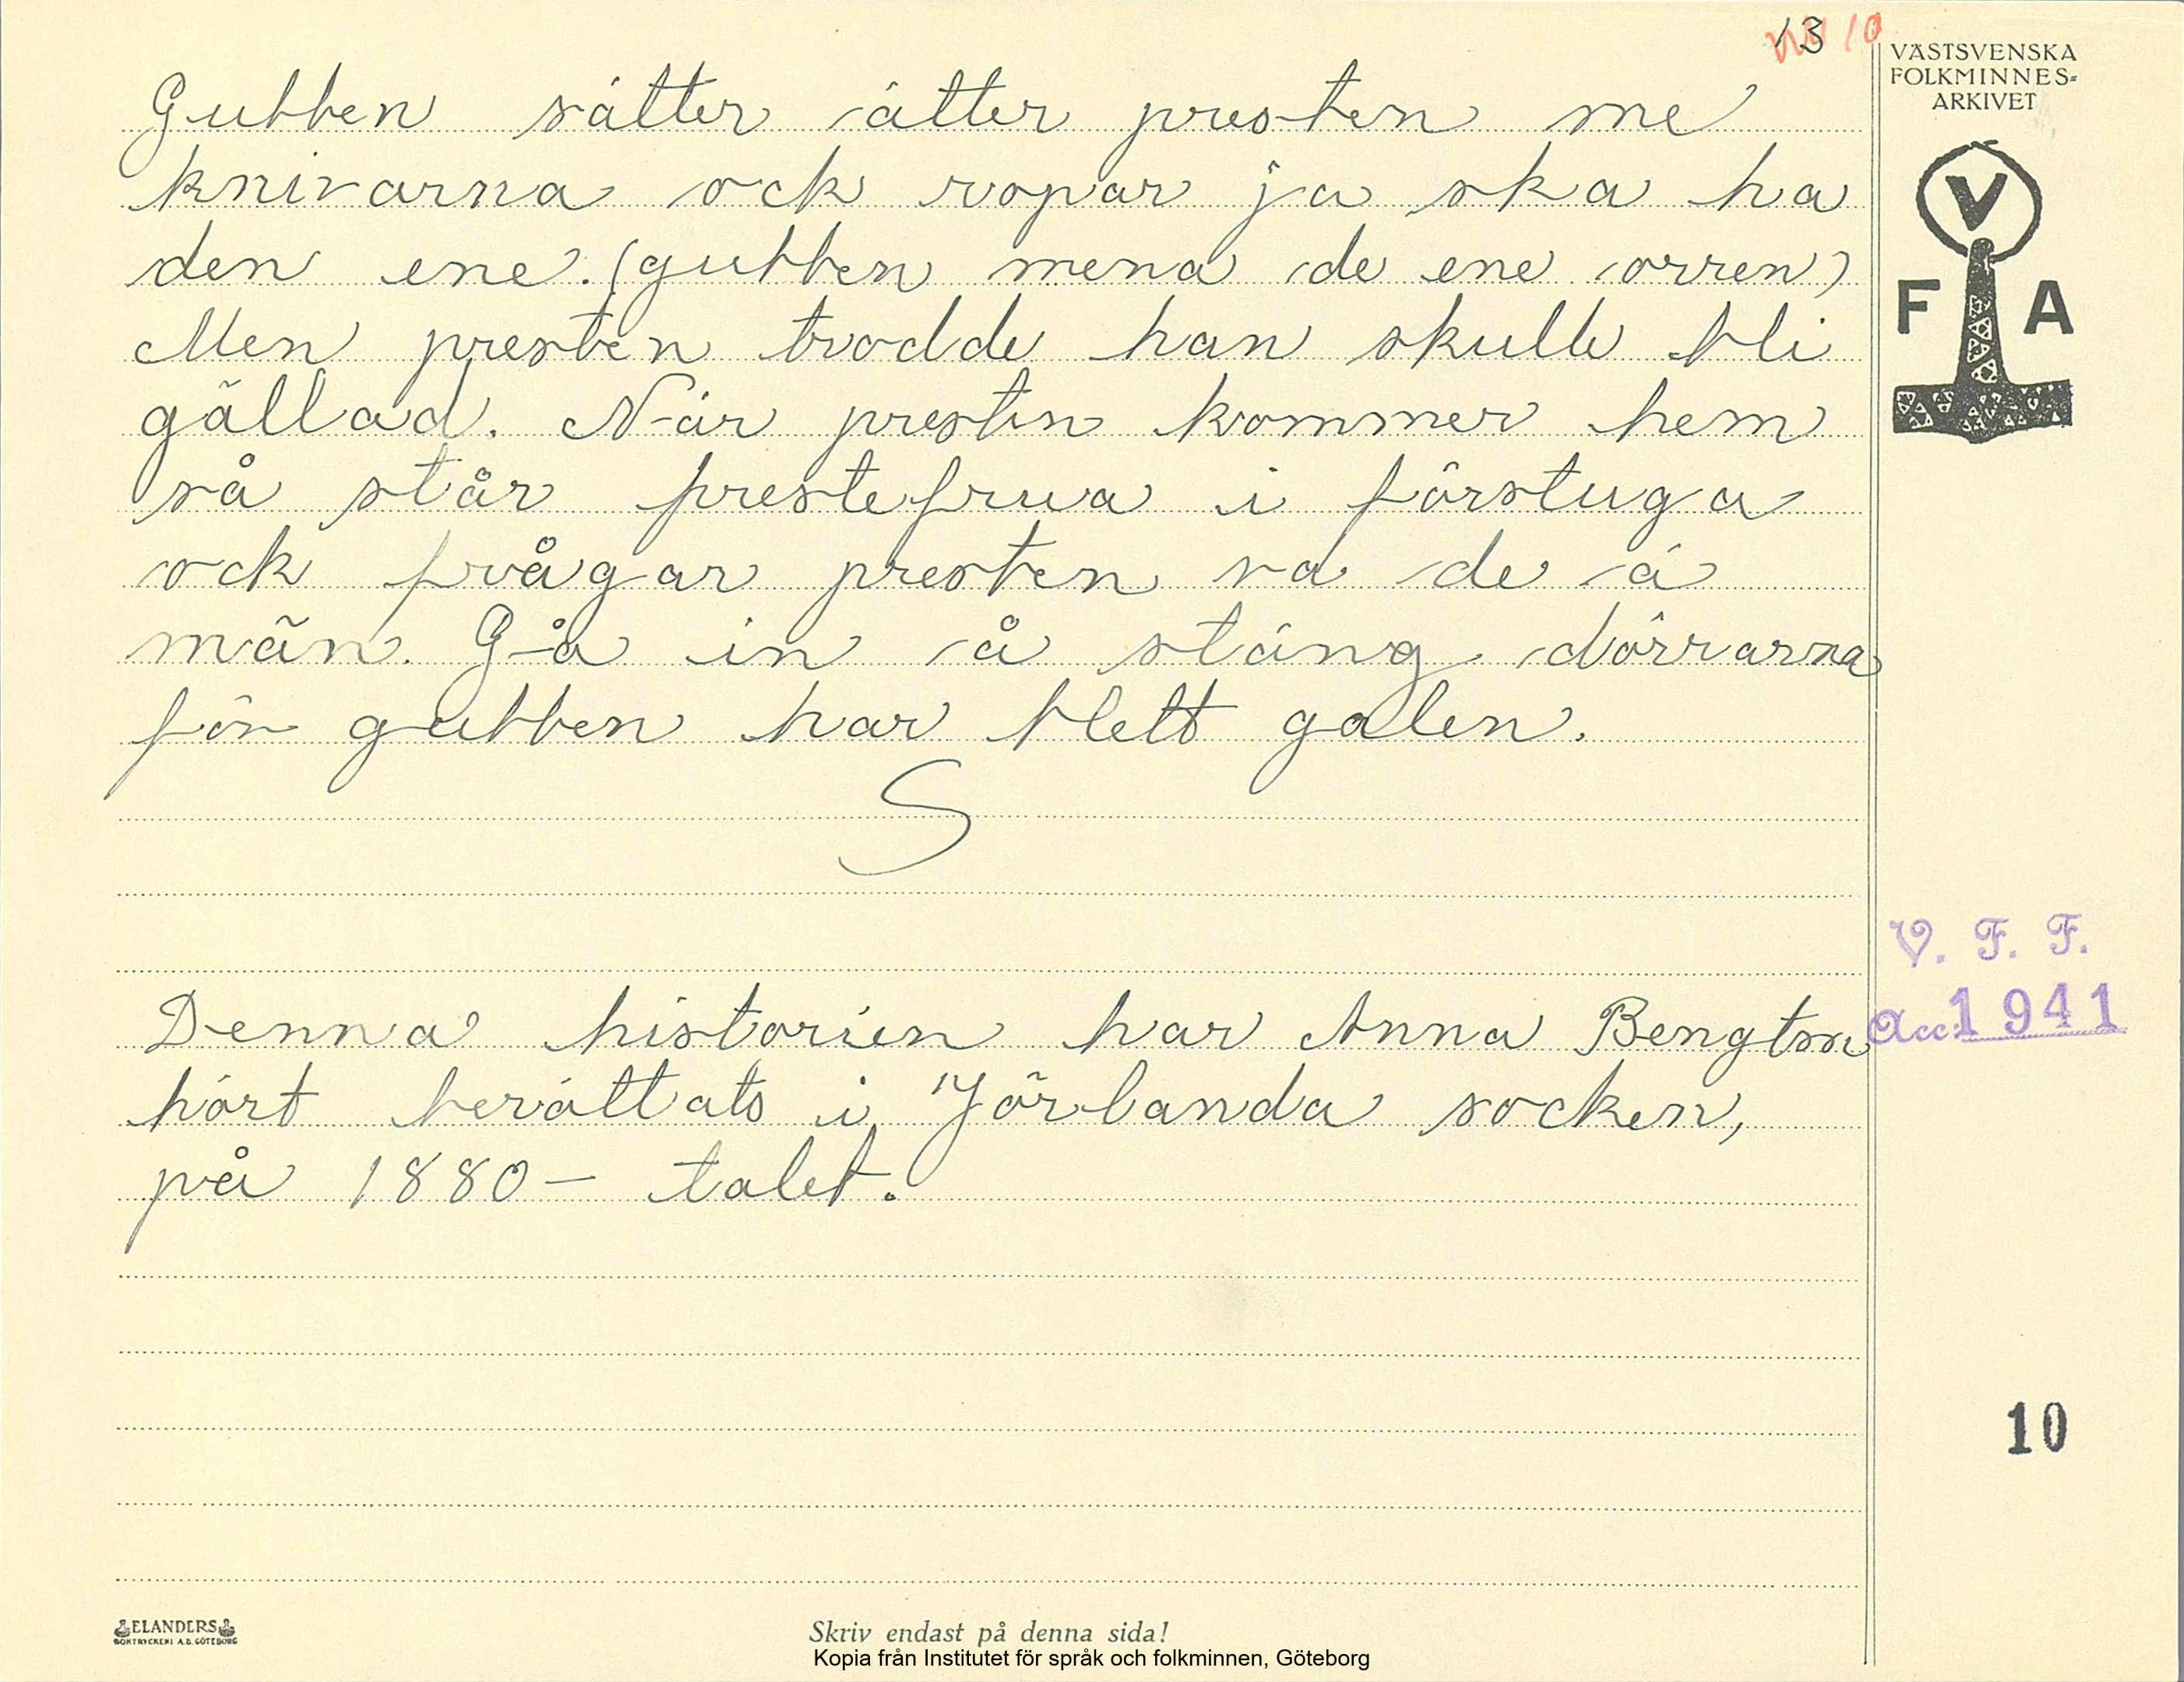 13 10
VÄSTSVENSKA
FOLKMINNES=
ARKIVET
V
F A
Gubben sätter ätter presten me
knivarna ock ropar ja ska ha
den ene. (gubben mena de ene orren)
Men presten trodde han skulle bli
gällad. När presten kommer hem
så står prestefrua i förstuga
ock frågar presten va de ä
män. Gå in å stäng dörrarna
för gubben har blett galen.
S
V. F. F.
Acc. 1941
Denna historien har Anna Bengtson
hört berättats i Jörlanda socken,
på 1880-talet.
10
ELANDERS
BOKTRYCKERI A.B. GÖTEBORG
Skriv endast på denna sida!
Kopia från Institutet för språk och folkminnen, Göteborg